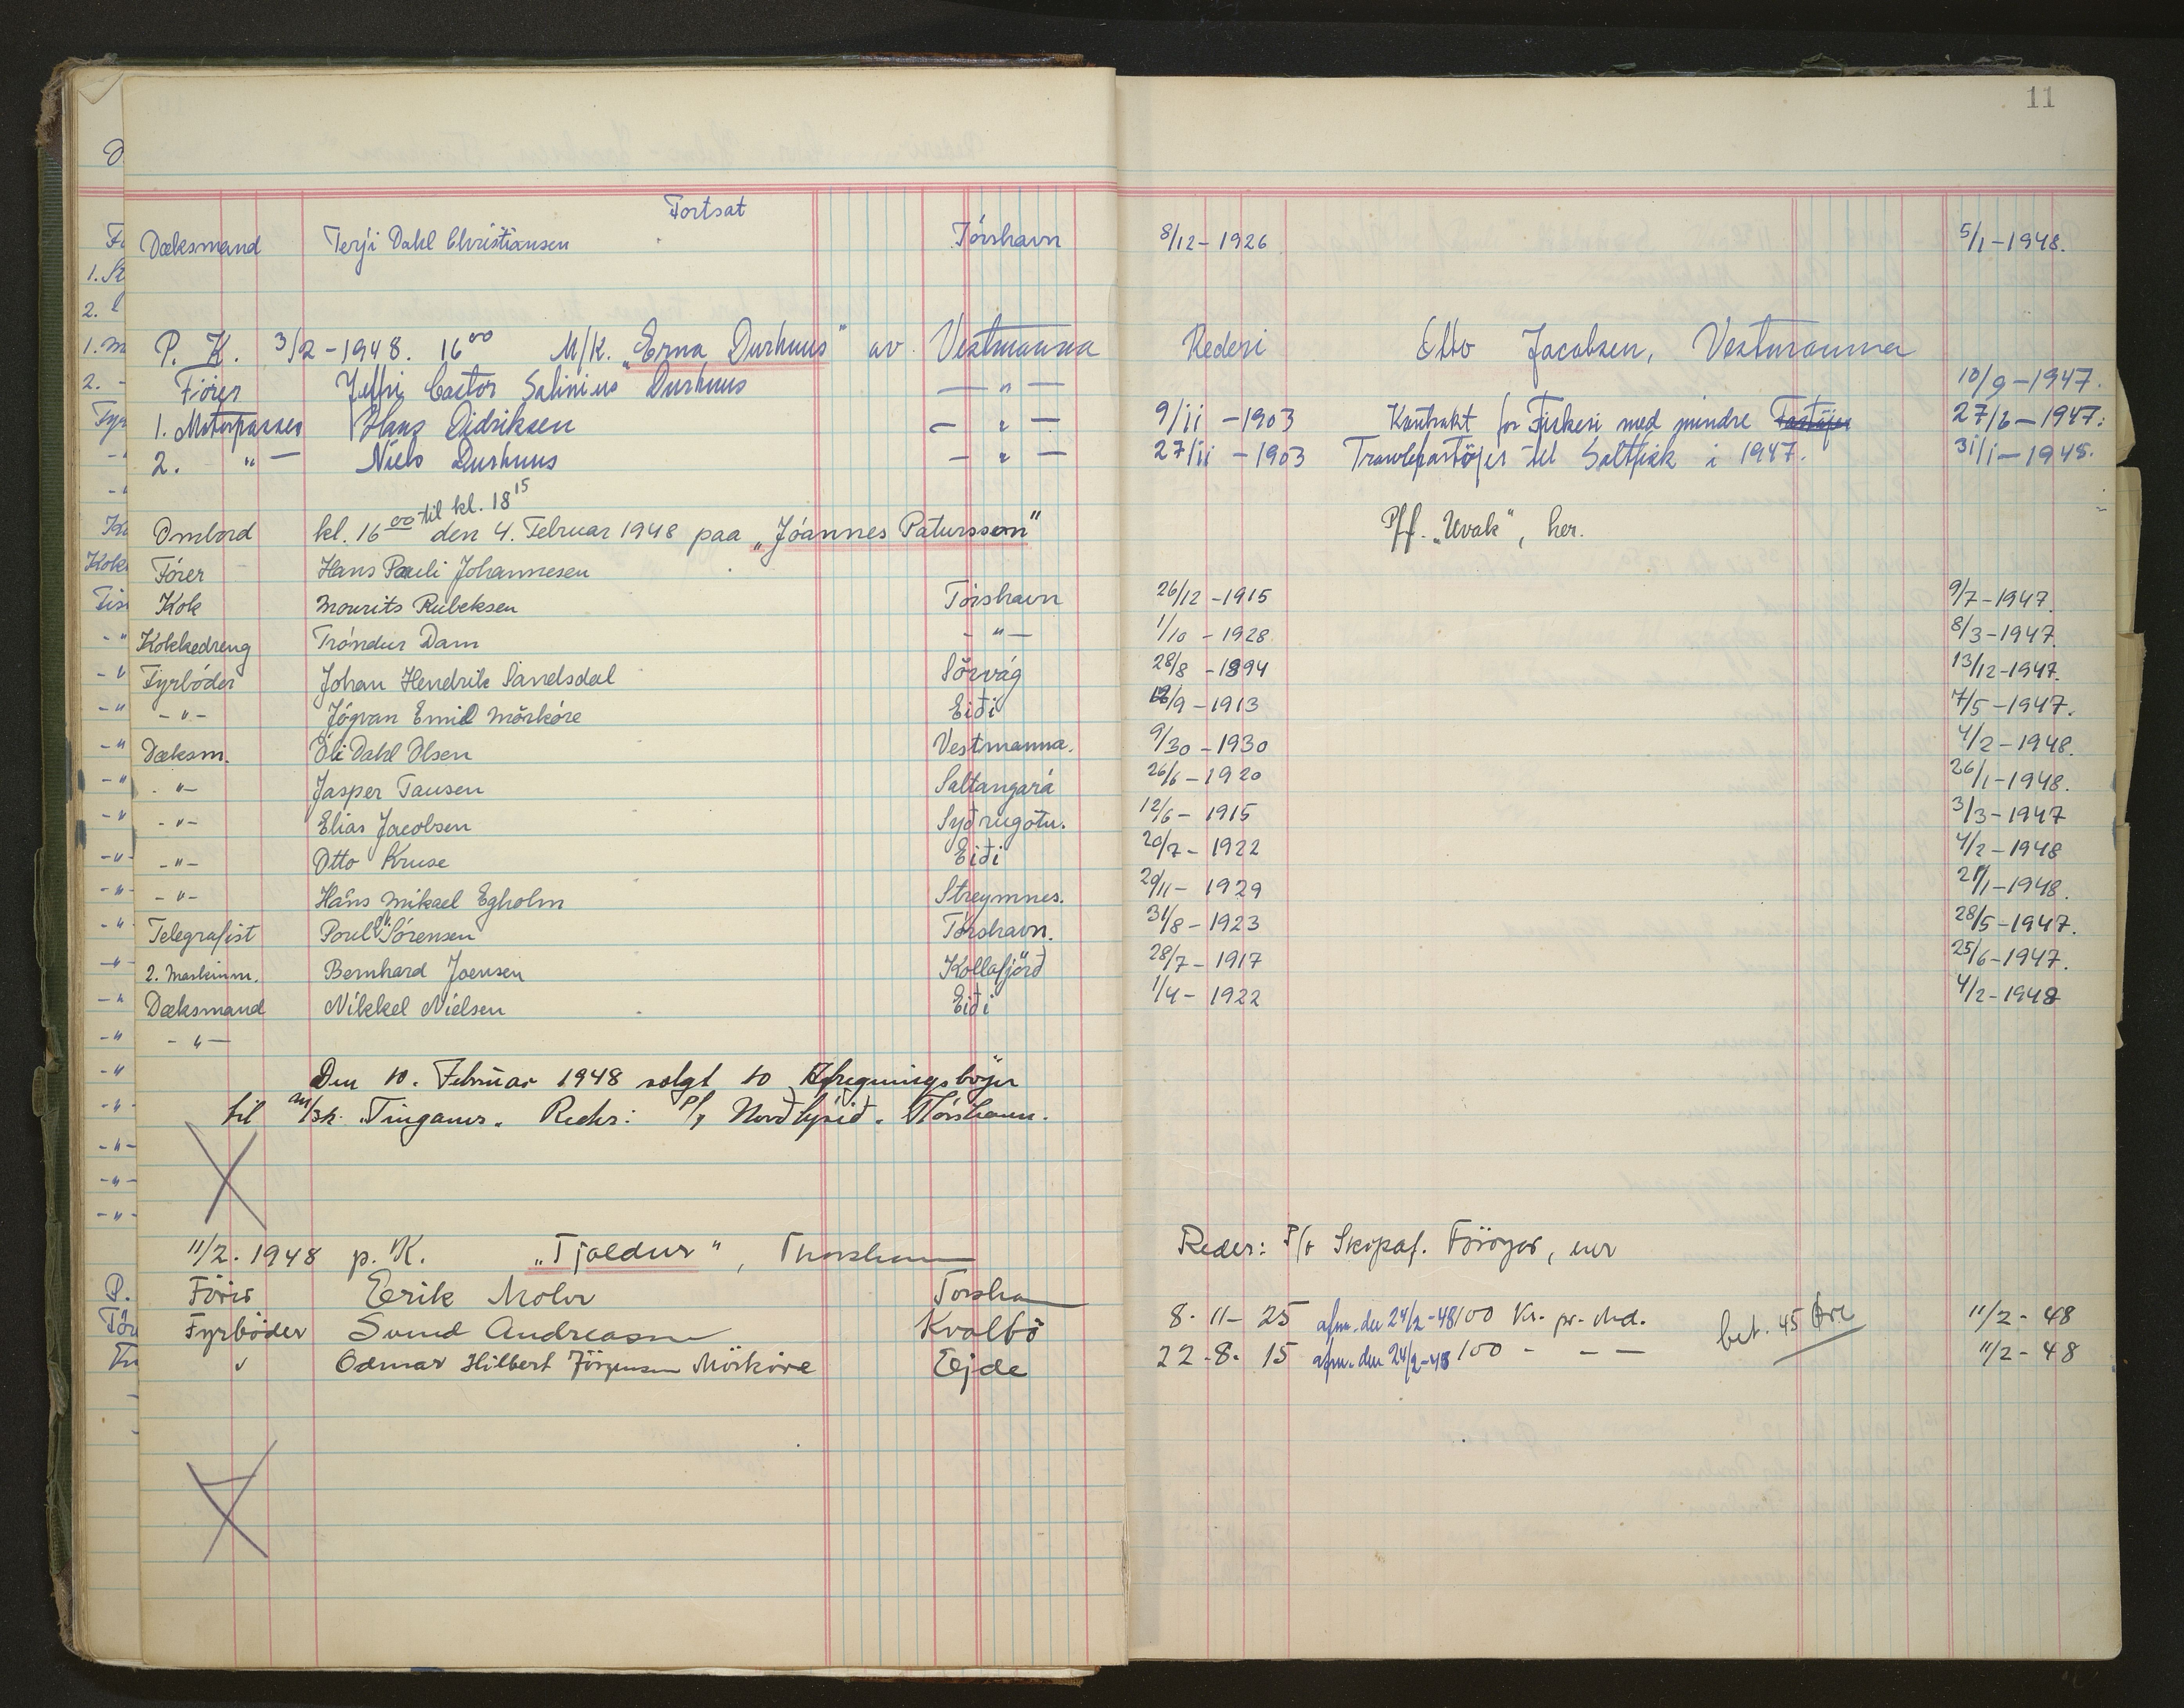 11
Fortsat
Dæksmand Terji Dahl Christiansen Tórshavn 8/12-1926 5/1-1948.
P. K. 3/2-1948. 16 00 M/K. "Erna Durhuus" av Vestmanna Rederi Otto Jacobsen, Vestmanna
Förer Castor Salinius Durhuus —"— 10/9-1947.
1. Motorpasser Hans Didriksen —"— 9/11-1903 Kontrakt for Fiskeri med mindre Fartöjer 27/6-1947.
2. "— Niels Durhuus —"— 27/11-1903 Trawlfartöjer til Saltfisk i 1947. 31/1-1948.
Ombord kl. 16 00 til kl. 18 15 den 4. Februar 1948 paa „Jóannes Patursson" P/f. „Uvak", her.
Förer Hans Pauli Johannesen
Kok Mourits Rubeksen Tórshavn 26/12-1915 9/7-1947.
Kokkedreng Tróndur Dam -"- 1/10-1928 8/3-1947.
Fyrbóder Johan Hendrik Sandsdal Sörvág 28/8-1894 13/12-1947.
-"- Jógvan Emil Mörköre Eiði /9-1913 7/5-1947.
Dæksm. Óli Dahl Olsen Vestmanna. 9/30-1930 4/2-1948.
-"- Jasper Tausen Saltangará 26/6-1920 26/1-1948.
-"- Elias Jacobsen Syðrugötu. 12/6-1915 3/3-1947
-"- Otto Kruse Eiði 20/7-1922 4/2-1948
-"- Hans Mikael Egholm Streymnes. 29/11-1929 21/1-1948.
Telegrafist Poul Sörensen Tórshavn. 31/8-1923 28/5-1947.
2. Maskinm. Bernhard Joensen Kollafjörð 28/7-1917 25/6-1947.
Dæksmand Nikkel Nielsen Eiði 1/4-1922 4/2-1948
-"-
Den 10. Februar 1948 solgt 10 Afregningsböger
til M/sk. „Tinganes„ Reder: P/f Norðlýsið. Tórshavn.
11/2. 1948 p. K. „Tjaldur", Thorshavn Reder: P/f Skipaf. Föroyar, her
Förer Erik Mohr Torshavn
Fyrböder Svend Andreasen Kvalbö 8-11-25 afm. den 24/2-48 100 Kr. pr. Md. bet. 45 Øre 11/2-48
" Odmar Hilbert Jörgensen Mörköre Ejde 22-8-15 afm. den 24/2-48 100 - - - 11/2-48